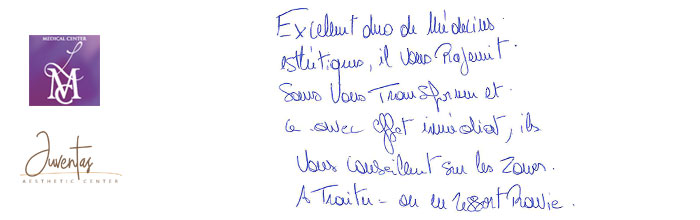 MEDICAL CENTER
LMC
Juventas
AESTHETIC CENTER
Excellent duo de Médecins
esthétiques, il vous Rajeunit
Sans Vous Transformer et
ce avec effet immédiat, ils
Vous conseillent sur les Zones
A Traiter - on en ressort Ravie.